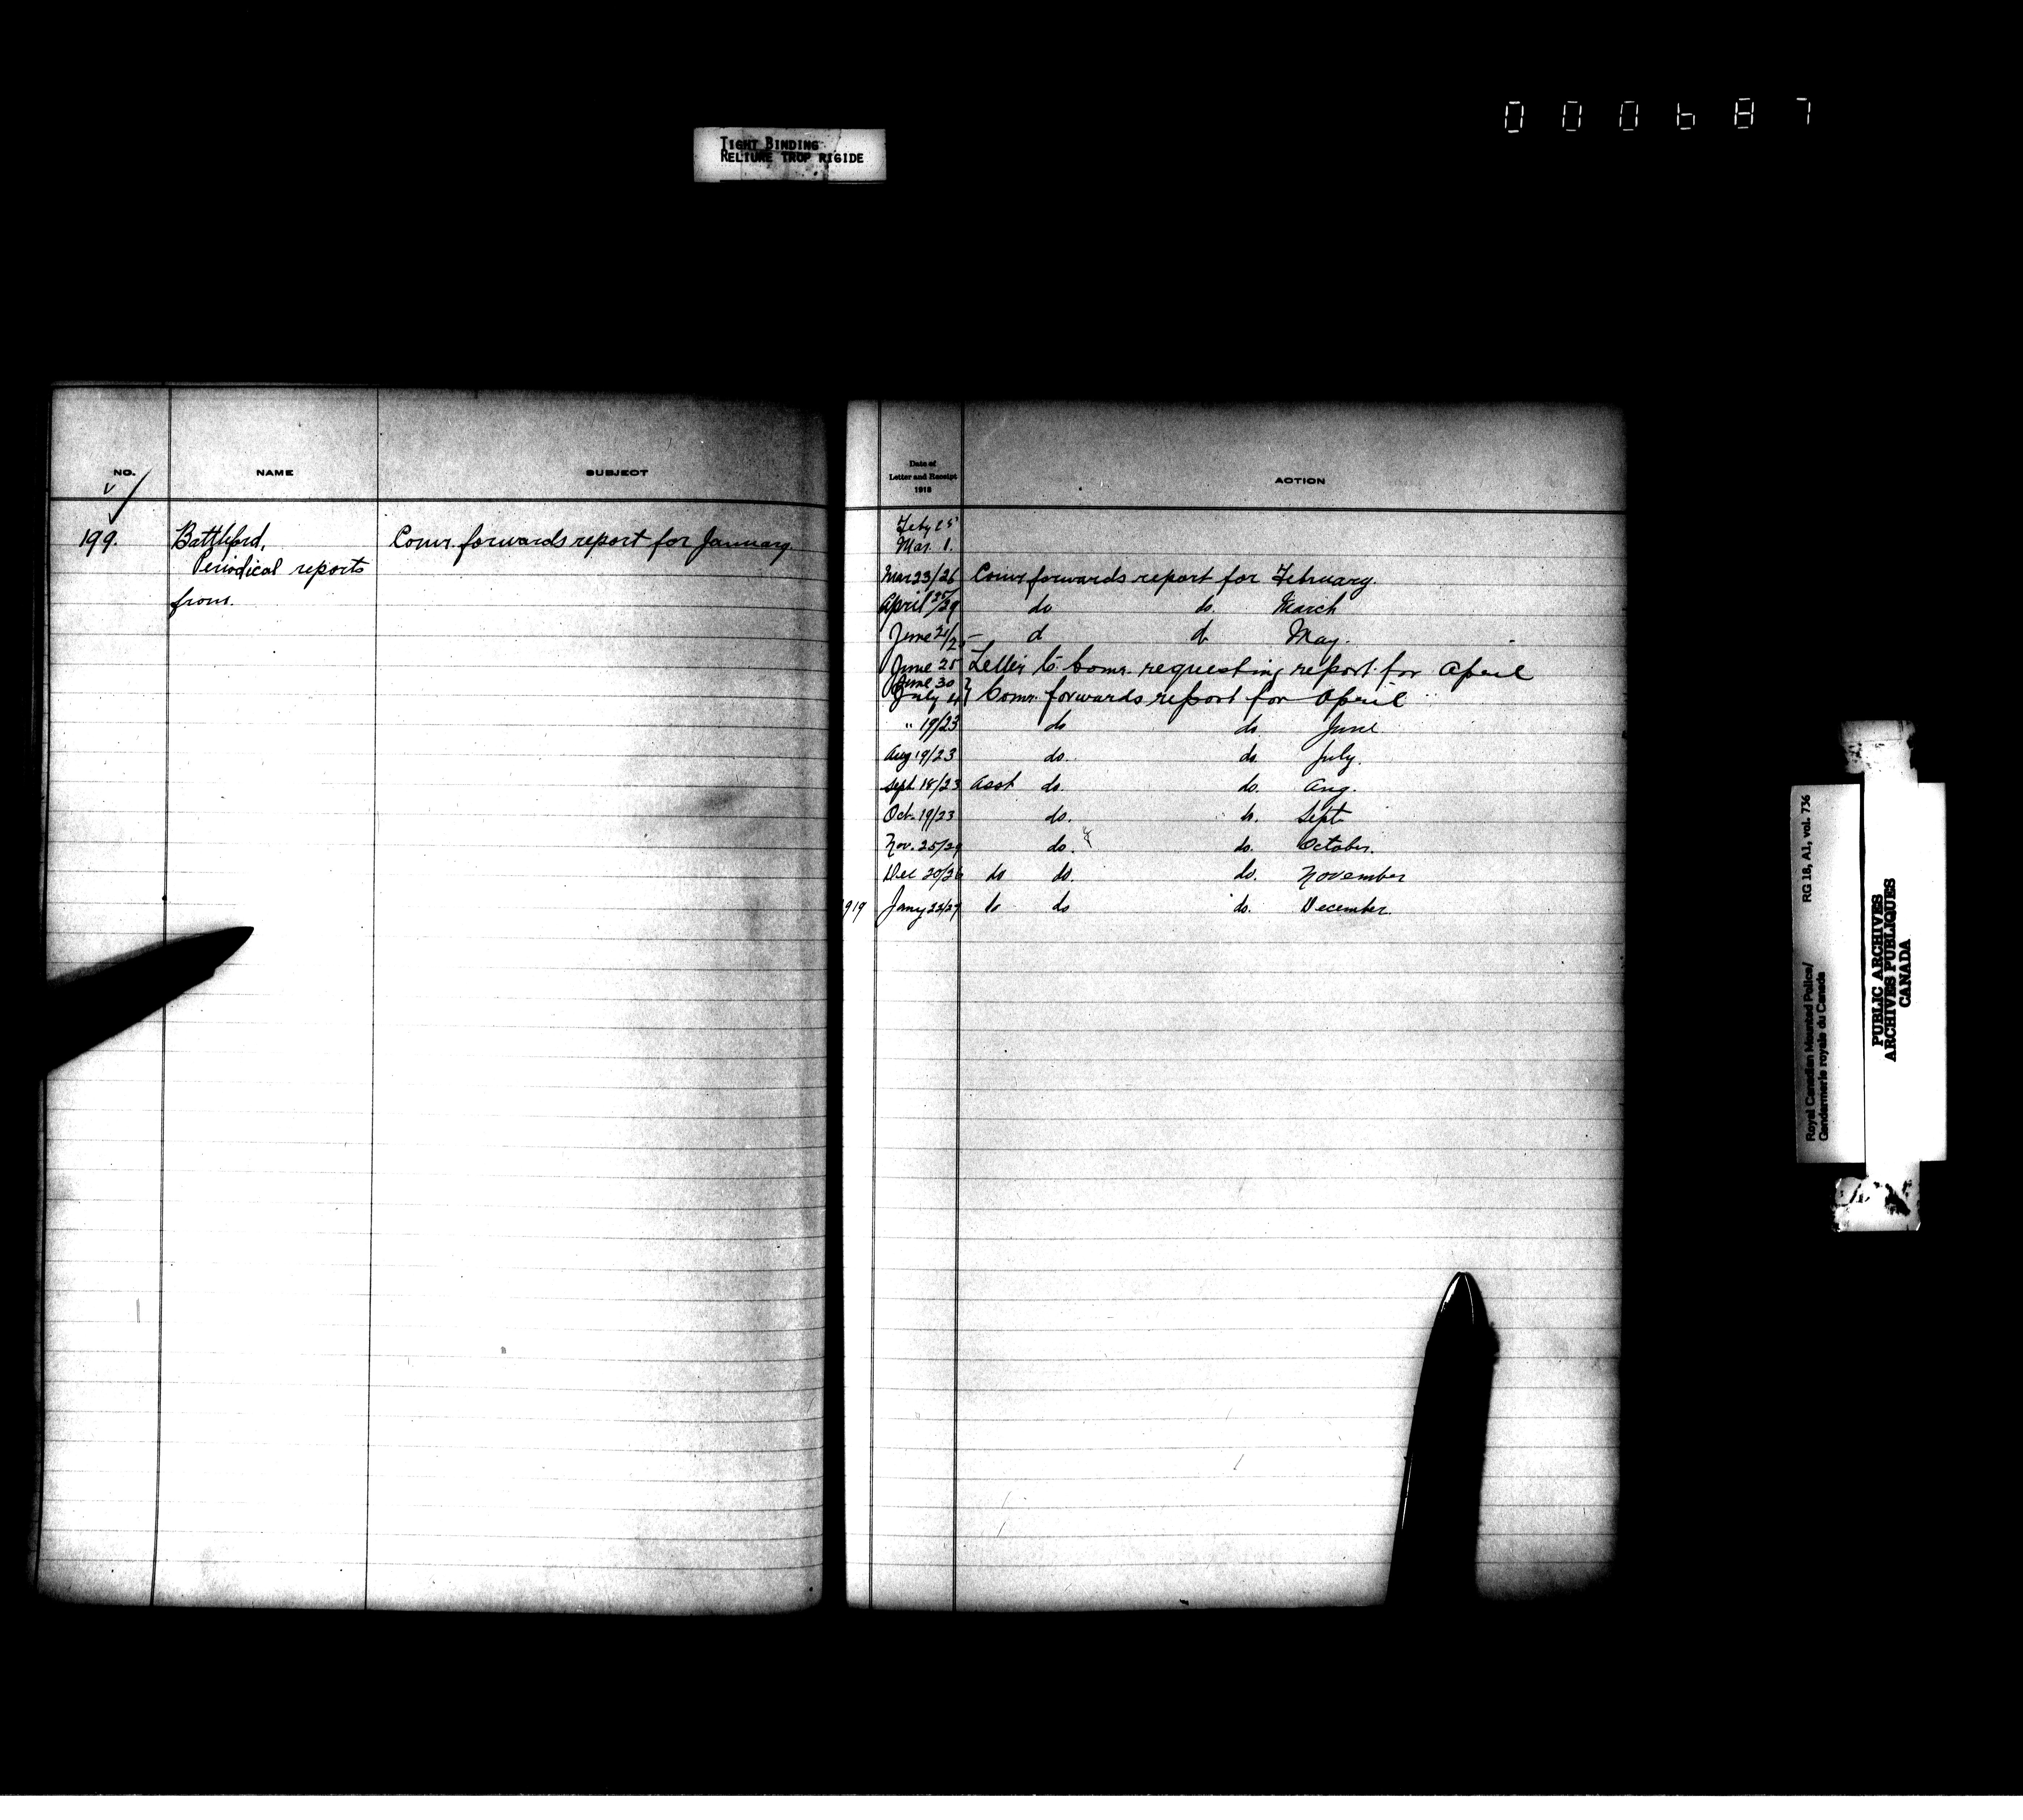 000687
TIGHT BINDING
RELIURE TROP RIGIDE
NO. NAME SUBJECT
199. Battleford, Comr. forwards report for January.
Periodical reports
from.
Date of
Letter and Receipt
1918
ACTION
Feby 25
Mar. 1.
Mar 23/26 Comr forwards report for February.
April 25/29 do do. March
June 21/2 - d d May.
June 25 Letter to Comr. requesting report for April
June 30
July 4 } Comr. forwards report for April
" 19/23 do do. June
Aug 19/23 do. do. July.
Sept 18/23 Asst do. do. Aug.
Oct. 19/23 do. do. Sept
Nov. 25/29 do. do. October.
Dec 20/26 do do. do. November
1919 Jany 22/27 do do do. December.
RG 18, A1, vol. 736
Royal Canadian Mounted Police/
Gendarmerie royale du Canada
PUBLIC ARCHIVES
ARCHIVES PUBLIQUES
CANADA